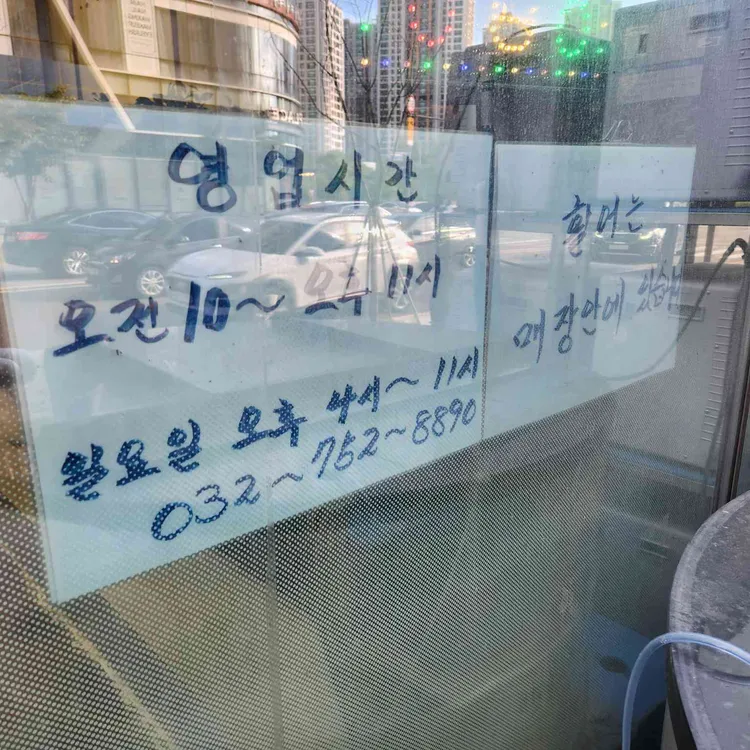 영업시간
오전 10~ 오후 11시
일요일 오후 4시~ 11시
032~752~8890
활어는
매장안에